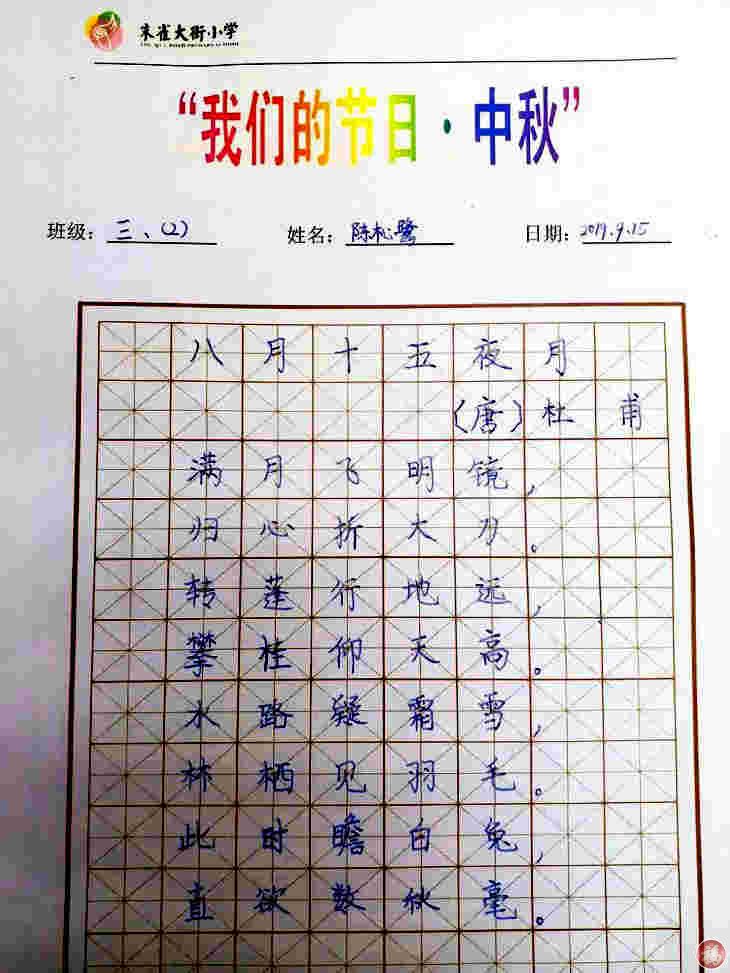 朱雀大街小学
“我们的节日·中秋”
班级：三、(2) 姓名：陈松鹭 日期：2019.9.15
八月十五夜月
（唐）杜甫
满月飞明镜，
归心折大刀。
转蓬行地远，
攀桂仰天高。
水路疑霜雪，
林栖见羽毛。
此时瞻白兔，
直欲数秋毫。